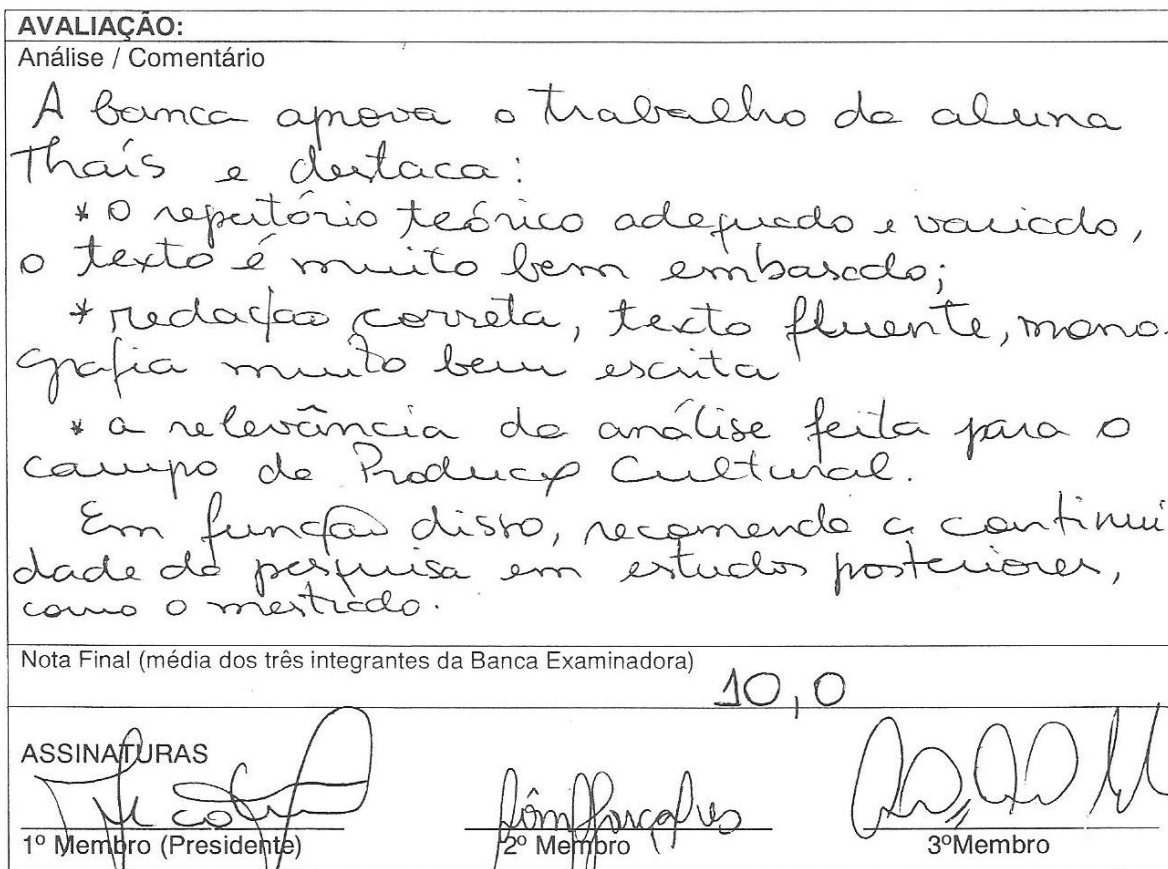 AVALIAÇÃO:
Análise / Comentário
A banca aprova o trabalho da aluna
Thaís e destaca:
* O repertório teórico adequado e variado,
o texto é muito bem embasado;
* redação correta, texto fluente, mono-
grafia muito bem escrita
* a relevância da análise feita para o
campo da Produção Cultural.
Em função disso, recomenda a continui
dade da pesquisa em estudos posteriores,
como o mestrado.
Nota Final (média dos três integrantes da Banca Examinadora) 10,0
ASSINATURAS
1º Membro (Presidente) 2º Membro 3ºMembro